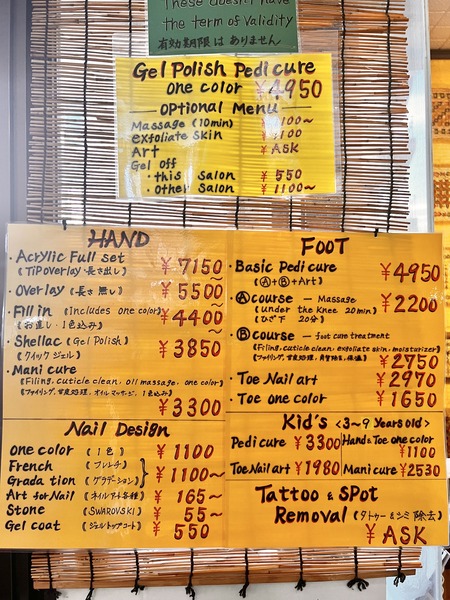 These doesn't have
the term of Validity
有効期限は ありません
Gel Polish Pedicure
one color ¥4950
optional Menu
Massage (10min) ¥1100~
exfoliate skin ¥1100
Art ¥ASK
Gel Off
・this salon ¥550
・Other Salon ¥1100~
HAND
・Acrylic Full set ¥7150
(TiP overlay 長さ出し) ~
・Overlay (長さ無し) ¥5500
・Fill in (includes one color) ¥4400
(お直し・1色込み) ~
・Shellac (Gel Polish) ¥3850
(クイックジェル)
・Manicure
(Filing, cuticle clean, oil massage, one color)
¥3300
Nail Design
one color (1色) ¥1100
French (フレンチ)
Gradation (グラデーション) } ¥1100~
Art for Nail (ネイルアート各種) ¥165~
Stone (SWAROVSKI) ¥55~
Gel coat (ジェルトップコート) ¥550
FOOT
・Basic Pedicure ¥4950
(Ⓐ+Ⓑ+Art)
・Ⓐcourse — Massage ¥2200
(under the Knee 20min)
(ひざ下 20分)
・Ⓑcourse — foot care treatment
(Filing, cuticle clean, exfoliate skin, moisturizer)
¥2750
・Toe Nail art ¥2970
・Toe one color ¥1650
Kid's <3~9 Years old>
Pedicure ¥3300 Hand&Toe one color
¥1100
Toe Nail art ¥1980 Manicure ¥2530
Tattoo & SPot
Removal (タトゥー&シミ除去)
¥ASK